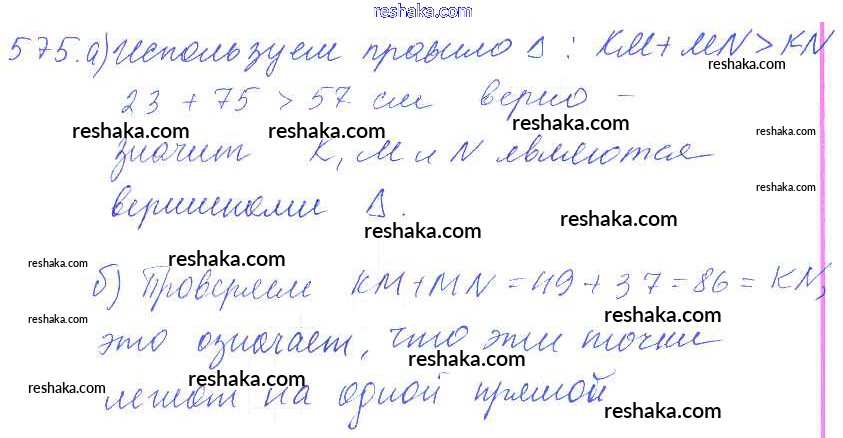 reshaka.com
575. а) Используем правило Δ: KM + MN > KN
reshaka.com reshaka.com reshaka.com
23 + 75 > 57 см верно –
reshaka.com reshaka.com reshaka.com reshaka.com
значит K, M и N являются
reshaka.com
вершинами Δ.
reshaka.com
reshaka.com reshaka.com
б) Проверяем KM + MN = 49 + 37 = 86 = KN,
reshaka.com reshaka.com
это означает, что эти точки
reshaka.com reshaka.com reshaka.com
лежат на одной прямой
reshaka.com